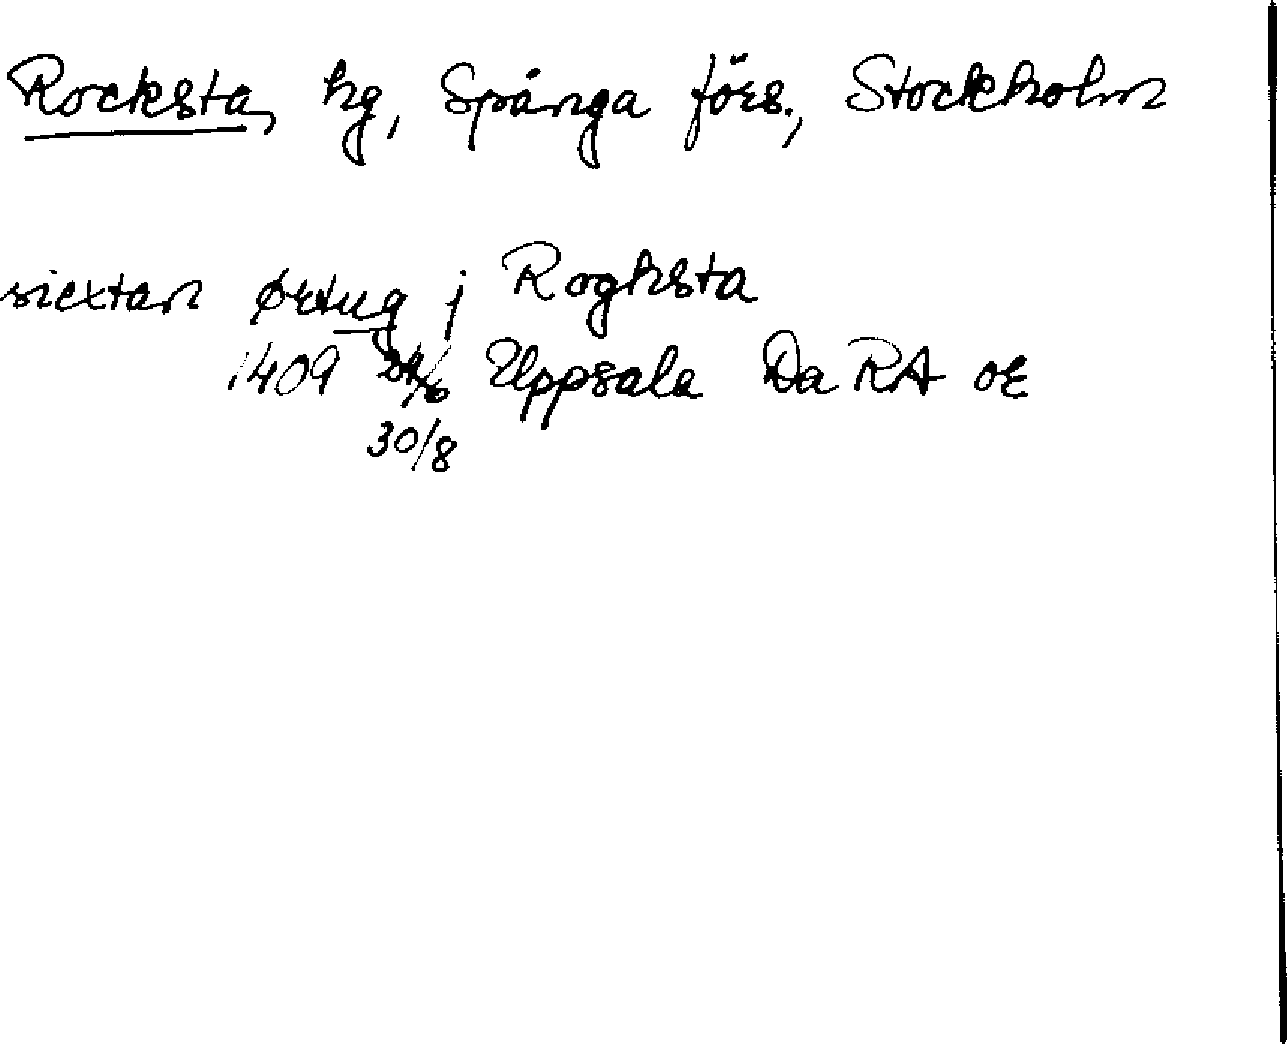 Rocksta, hg, Spånga förs., Stockholm
siextan ørtug j Rogksta
1409 Uppsala Da RA or
30/8